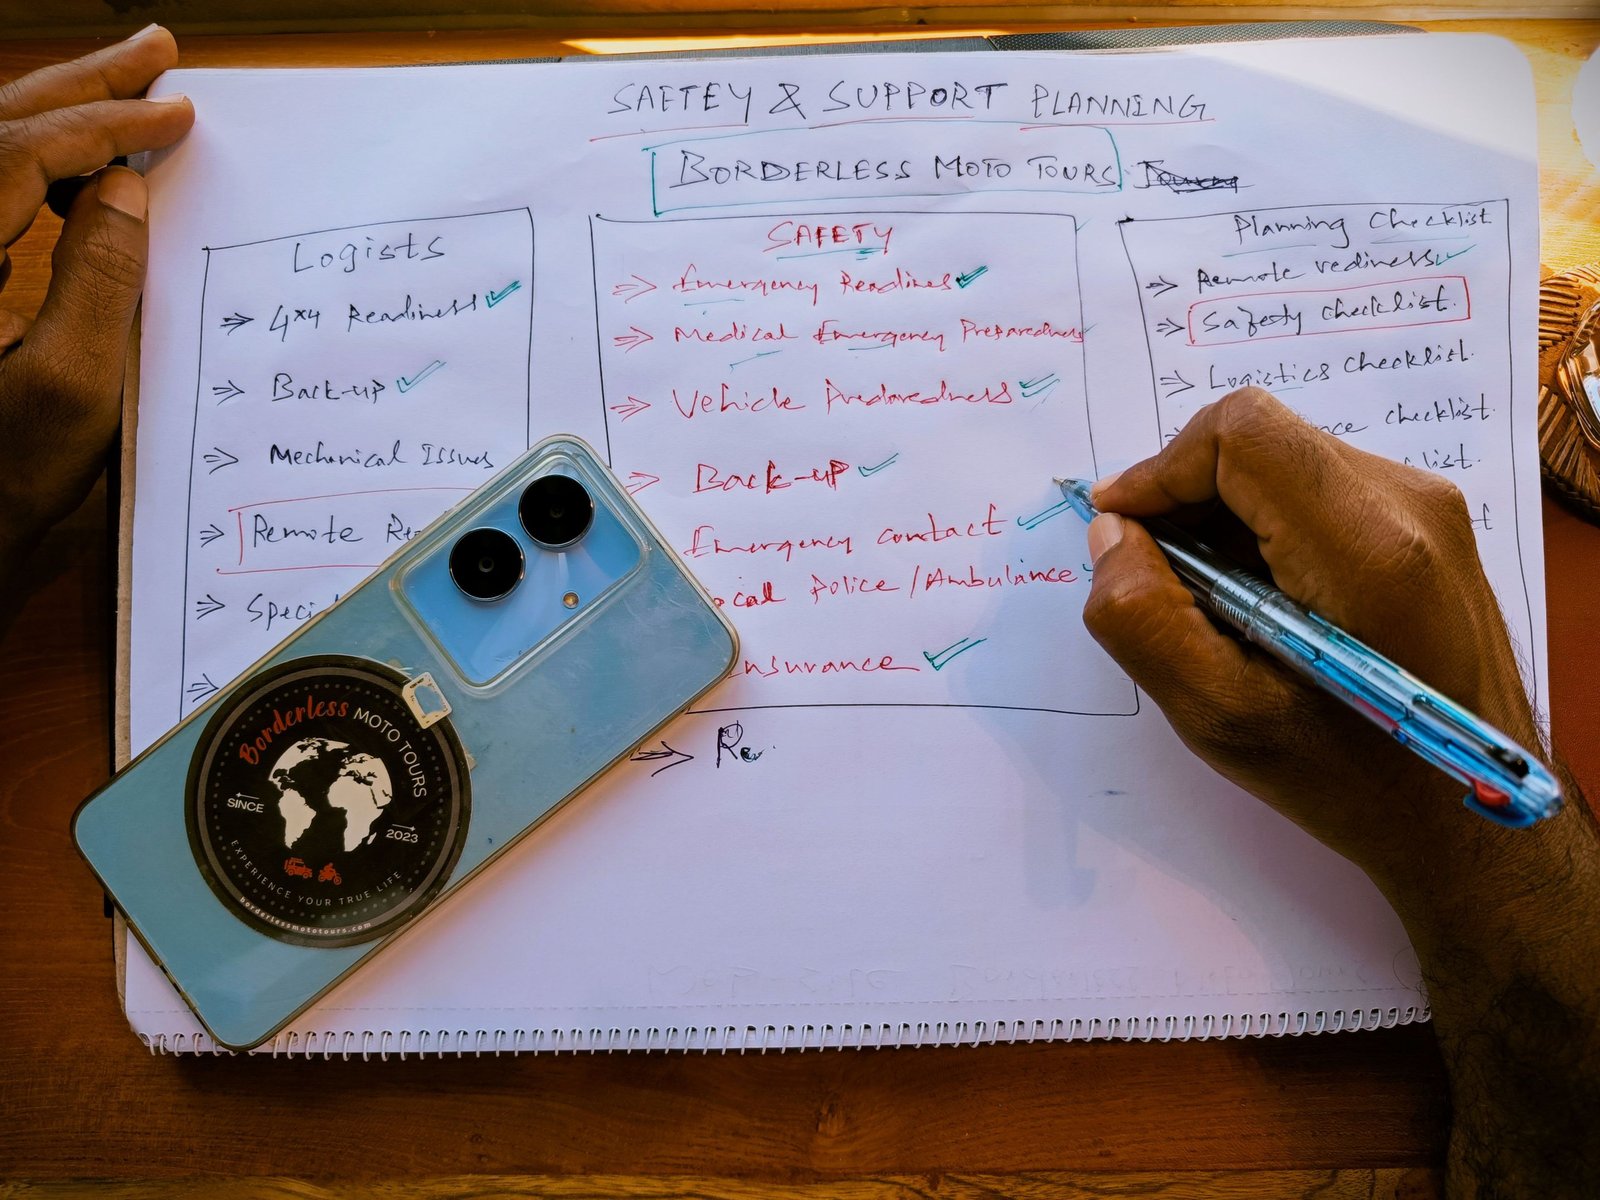 SAFTEY & SUPPORT PLANNING
BORDERLESS MOTO TOURS
Logists
4x4 Readiness
Back-up
Mechanical Issues
Remote Re
Speci
SAFETY
Emergency Readines
Medical Emergency Preparedness
Vehicle Preparedness
Back-up
Emergency contact
ocal Police/Ambulance
nsurance
Re
Planning Checklist
Remote rediness
Safety checklist.
Logistics checklist.
nce checklist.
list.
Borderless MOTO TOURS
SINCE
2023
EXPERIENCE YOUR TRUE LIFE
borderlessmototours.com